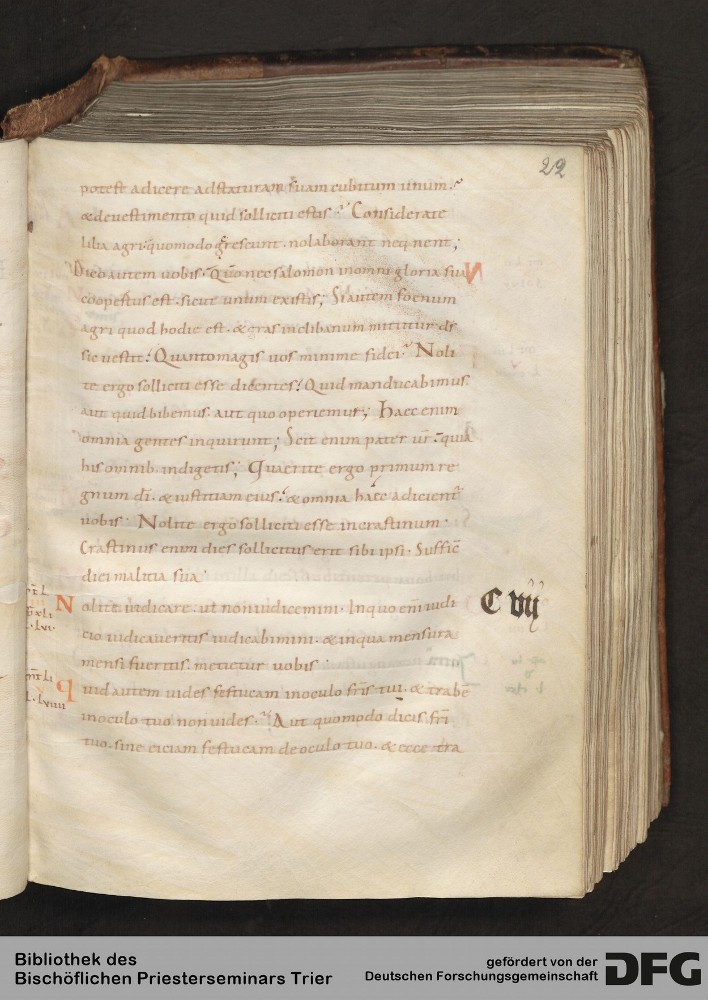 22
potest adicere adstaturam suam cubitum unum?
& devestimento quid solliciti estis? Considerate
lilia agri quomodo crescunt. nolaborant neq; nent;
Dico autem vobis. Qm nec salomon inomni gloria sua
coopertus est. sicut unum existis; Si autem foenum
agri quod hodie est. & cras inclibanum mittitur. ds
sic vestit. Quanto magis vos minime fidei? Noli
te ergo solliciti esse dicentes. Quid manducabimus
aut quid bibemus. aut quo operiemur; Haec enim
omnia gentes inquirunt; Scit enim pater ur. quia
his omnib. indigetis; Quaerite ergo primum re
gnum di. & iustitiam eius. & omnia haec adicient
vobis. Nolite ergo solliciti esse incrastinum.
Crastinus enim dies sollicitus erit sibi ipsi. Suffic
diei malitia sua.
Nolite iudicare. ut non iudicemini. Inquo eni iudi
cio iudicaveritis iudicabimini. & inqua mensura
mensi fueritis. metietur vobis.
C vij
Quid autem vides festucam inoculo fris tui. & trabe
inoculo tuo non vides? Aut quomodo dicis fri
tuo. sine eiciam festucam de oculo tuo. & ecce tra
Bibliothek des
Bischöflichen Priesterseminars Trier
gefördert von der
Deutschen Forschungsgemeinschaft
DFG